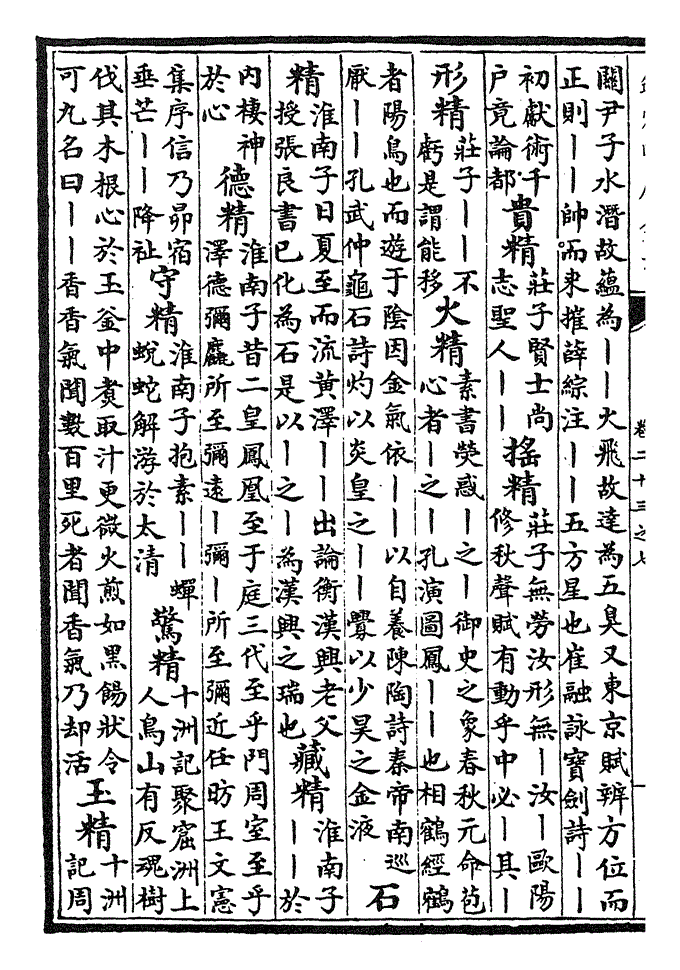 關尹子水潛故蘊為丨丨火飛故達為五臭又東京賦辨方位而
正則丨丨帥而來摧薛綜注丨丨五方星也崔融詠寶劍詩丨丨
初獻術千
户竟論都
貴精
莊子賢士尚
志聖人丨丨
搖精
莊子無勞汝形無丨汝丨歐陽
修秋聲賦有動乎中必丨其丨丨
形精
莊子丨丨不
虧是謂能移
火精
素書熒惑丨之丨御史之象春秋元命苞
心者丨之丨孔演圖鳳丨丨也相鶴經鶴
者陽鳥也而遊于陰因金氣依丨丨以自養陳陶詩秦帝南巡
厭丨丨孔武仲龜石詩灼以炎皇之丨丨釁以少昊之金液
石
精
淮南子曰夏至而流黄澤丨丨出論衡漢興老父
授張良書已化為石是以丨之丨為漢興之瑞也
藏精
淮南子
丨丨於
内棲神
於心
德精
淮南子昔二皇鳳凰至于庭三代至乎門周室至乎
澤德彌麤所至彌遠丨彌丨所至彌近任昉王文憲
集序信乃昴宿
垂芒丨丨降祉
守精
淮南子抱素丨丨蟬
蛻蛇解游於太清
驚精
十洲記聚窟洲上
人鳥山有反魂樹
伐其木根心於玉釜中煮取汁更微火煎如黑餳狀令
可九名曰丨丨香香氣聞數百里死者聞香氣乃却活
玉精
十洲
記周
卷二十三之七